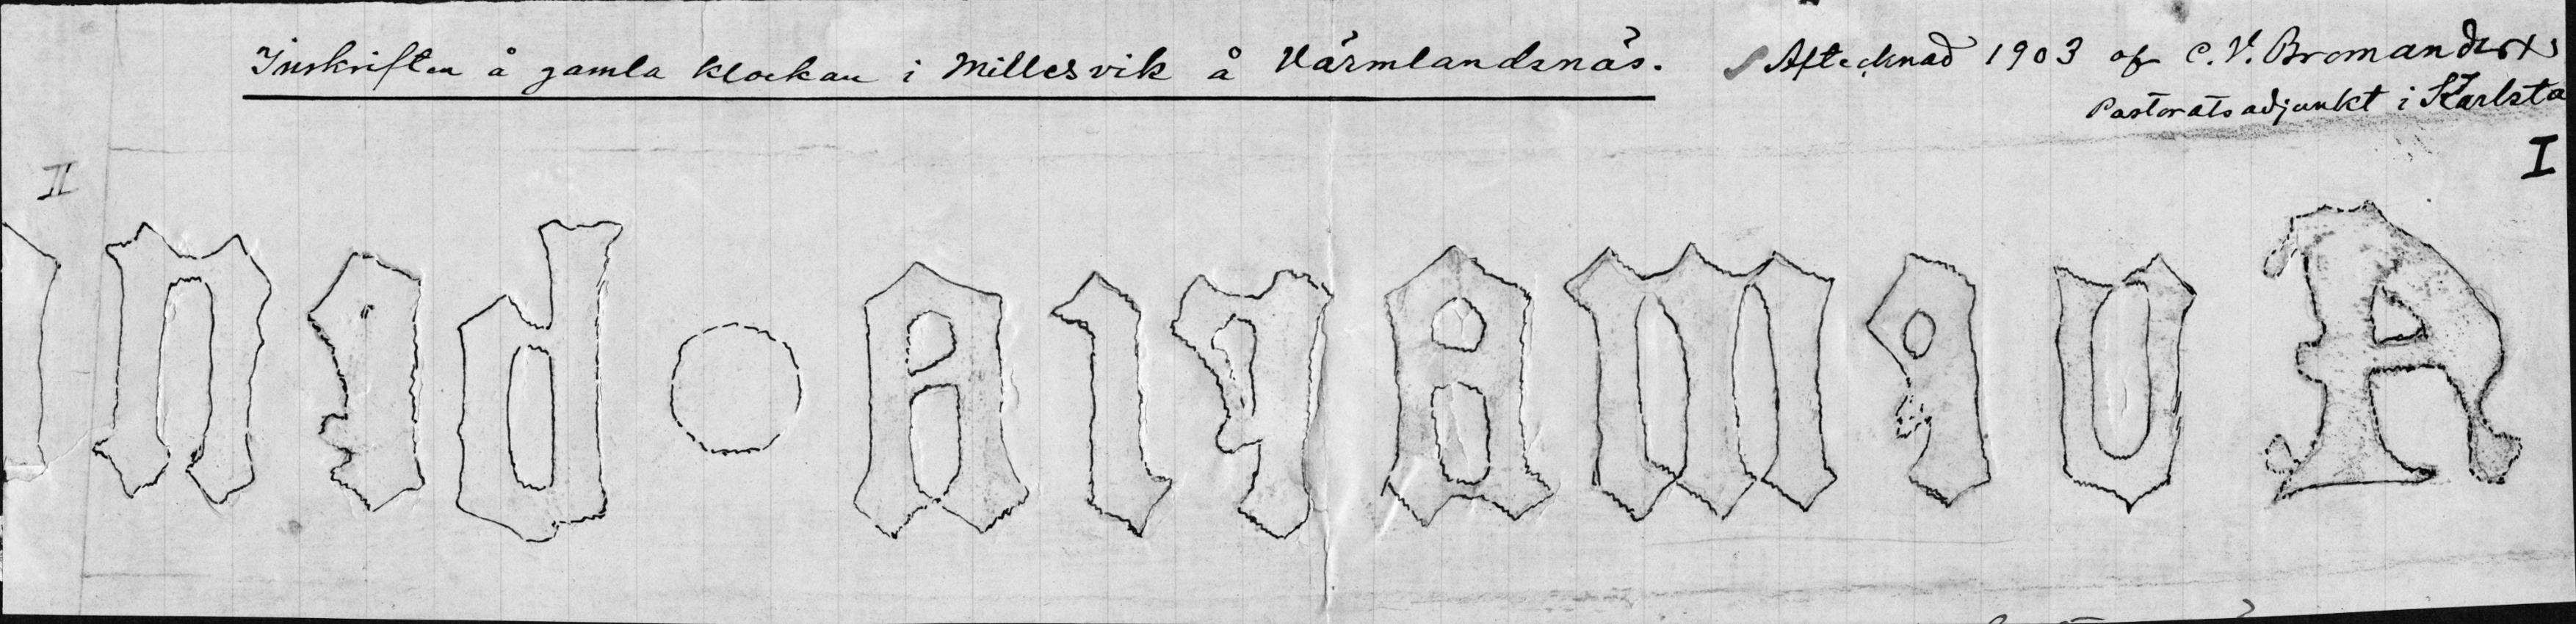 Inskriften å gamla klockan i Millesvik å Värmlandsnäs. Aftecknad 1903 af C. V. Bromander
Pastoratsadjunkt i Karlsta
I
II
Avemaria ○ den